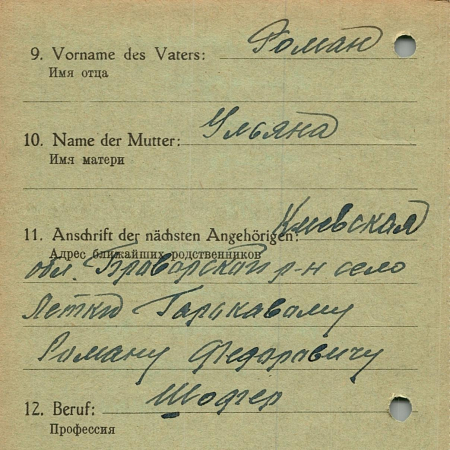 9. Vorname des Vaters: Роман
Имя отца
10. Name der Mutter: Ульяна
Имя матери
11. Anschrift der nächsten Angehörigen: Киевская
Адрес ближайших родственников
обл. Браворский р-н село
Летки Гарькавому
Роману Федоравичу
12. Beruf: Шофер
Профессия